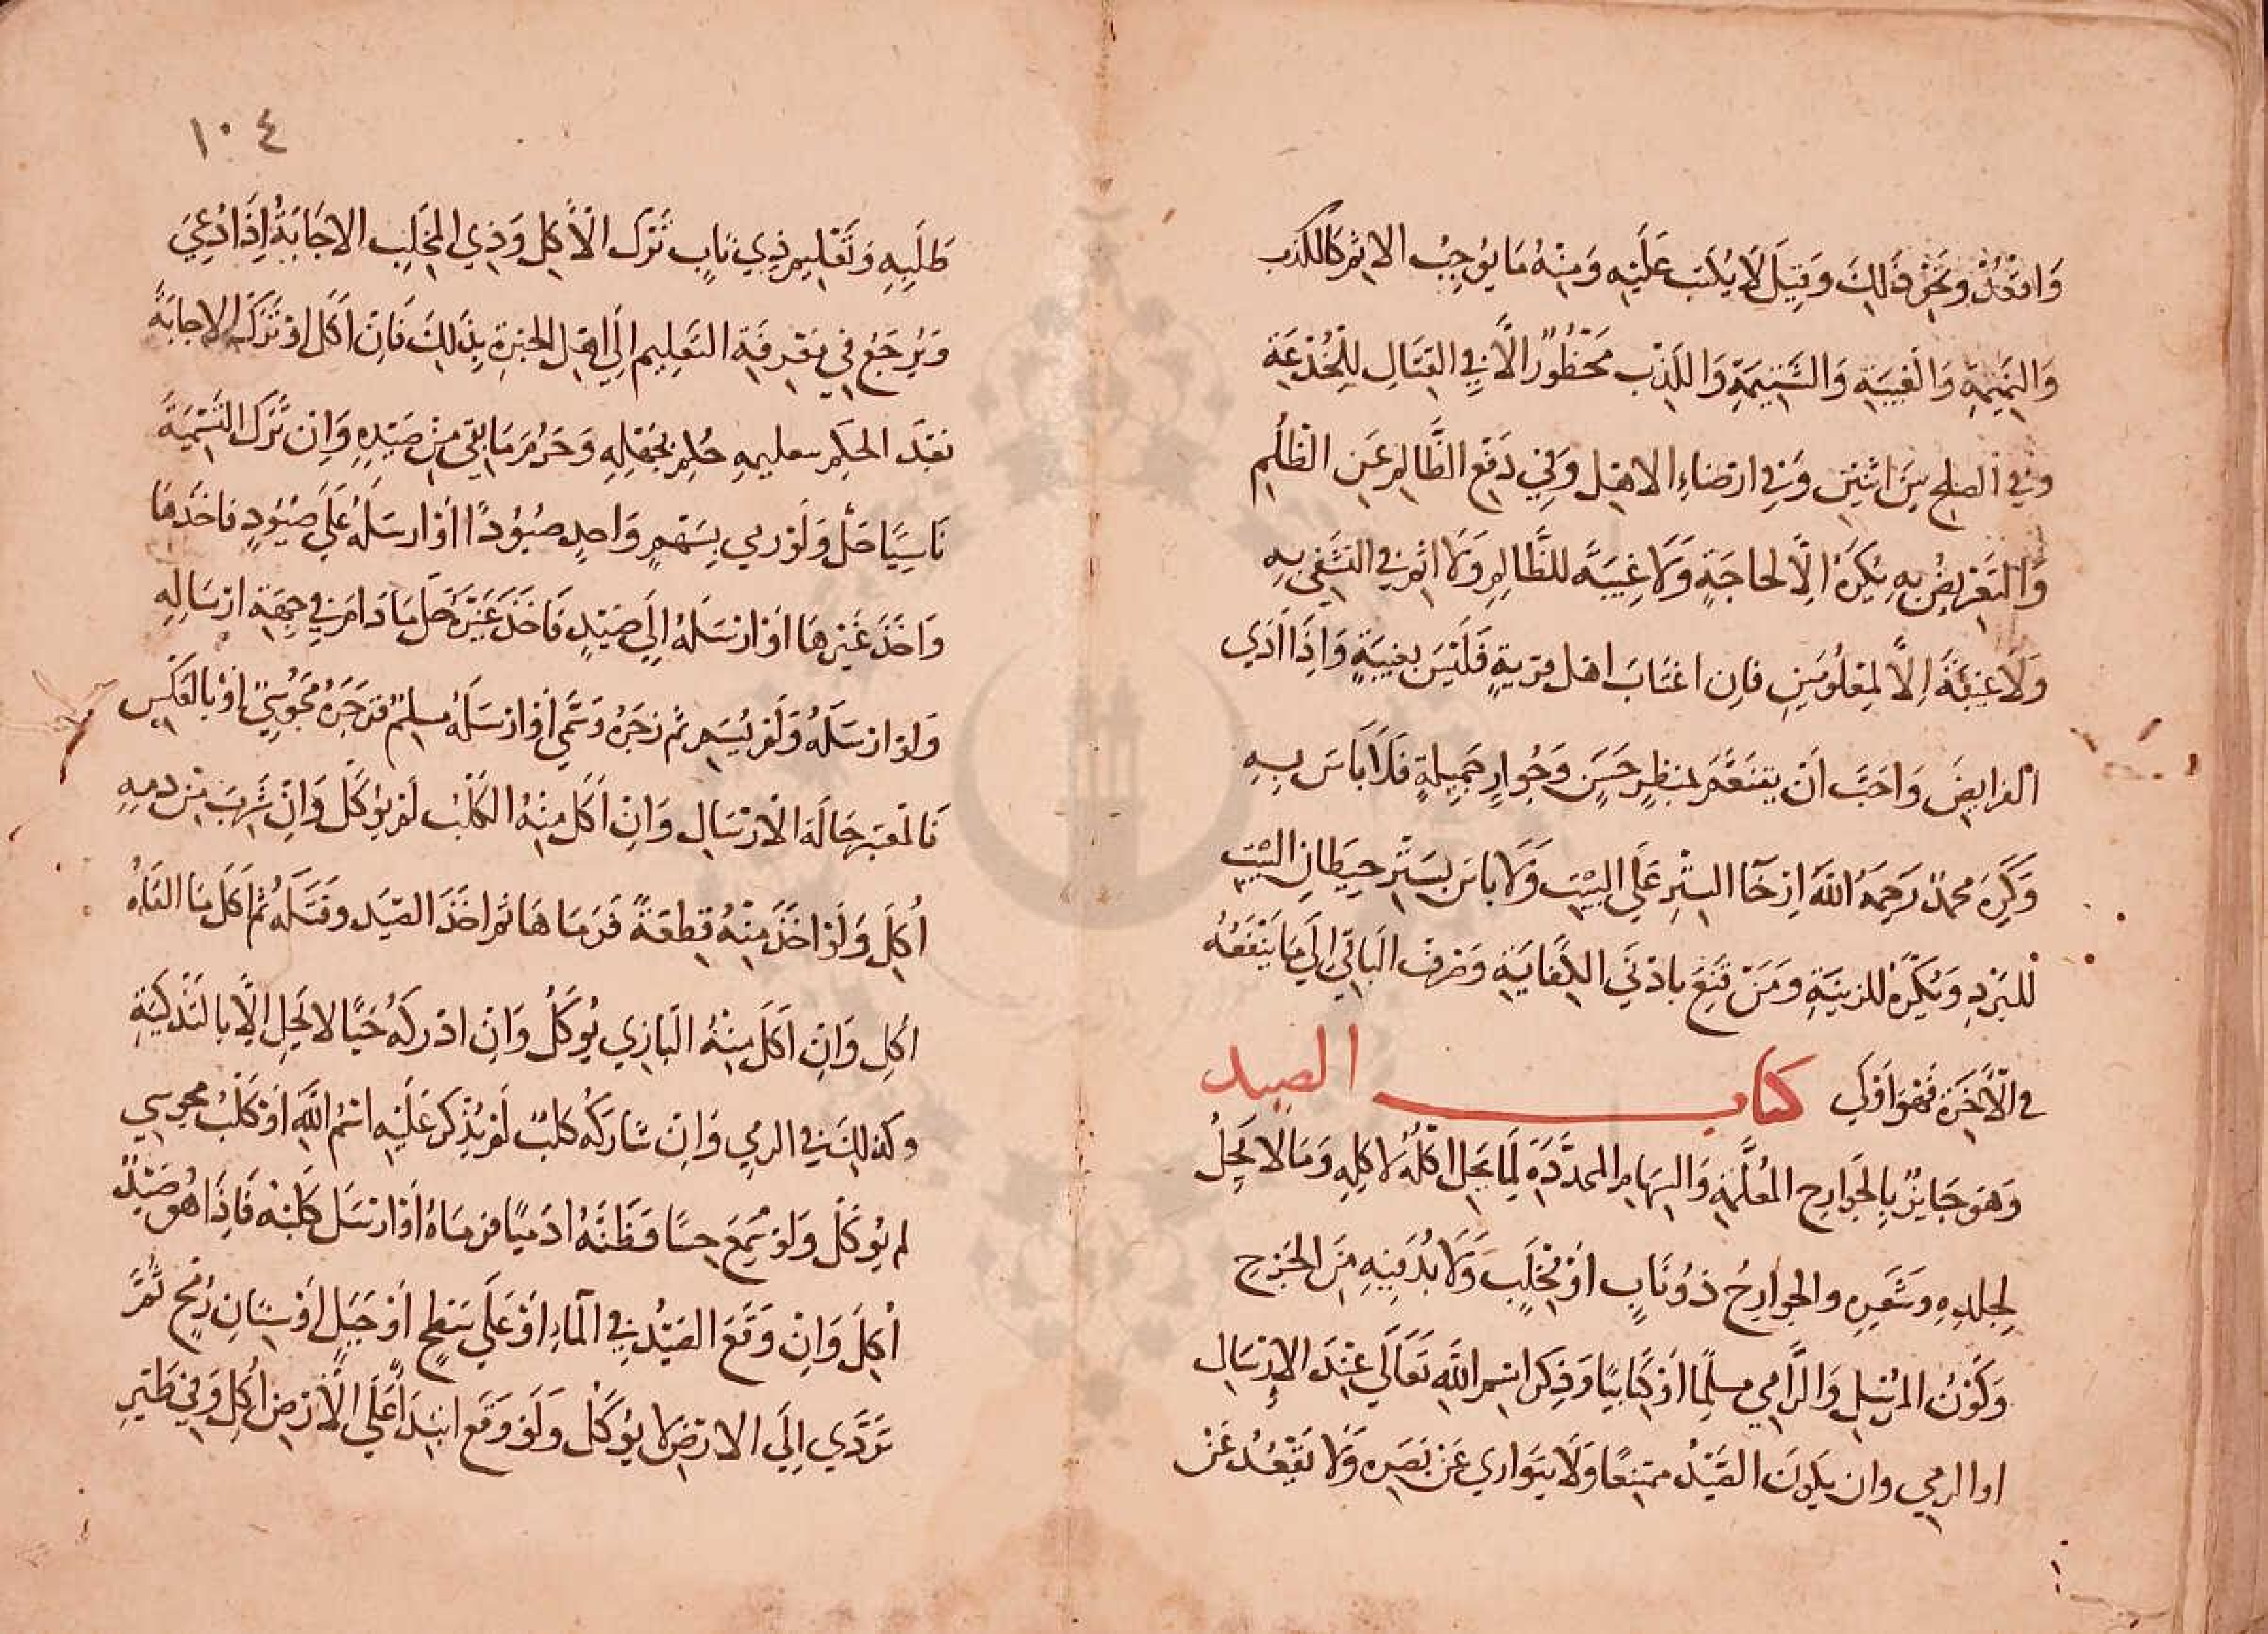 وَاقْعُدْ وَنَحْوِ ذَلِكَ وَقِيلَ لَا يُكتَب عَلَيْهِ وَمِنْهُ مَا يُوجِبُ الاثم كالكذب
وَالنَّمِيمَةِ وَالغِيبَةِ وَالشَّتِيمَةِ وَالكَذِب مَحْظُورٌ الَّا فِي القِتَالِ لِلْخُدْعَةِ
وَفي الصلح بَيْنَ اثنَينِ وَفِي ارضاءِ الاهْلِ وَفِي دَفْعِ الظَّالِمِ عَنِ الظُّلْمِ
وَالتَّعْرِيضُ بِهِ يُكْرَهُ اِلَّا لحاجَةٍ وَلَا غِيبَةَ للظَّالِمِ وَلَا اثْمَ في السَّعْيِ بِهِ
وَلَا غِيبَةَ اِلَّا لِمَعْلُومِينَ فَاِن اغتَابَ اهْل قريةٍ فَلَيْسَ بغِيبَةٍ وَاِذَا ادَّي
الفرايضَ وَاحَبَّ اَنْ يتنَعَّمَ بمَنظَرٍ حَسَنٍ وَجَوارٍ جَمِيلَةٍ فَلَا بَاسَ بِهِ
وَكَرِهَ محمدٌ رَحِمَهُ اللهُ اِرْخَا السِّتْرِ عَلَي البيْتِ وَلَا باسَ بسَتْرِ حيطَانِ البَيْتِ
للبَرْدِ وَيُكْرَهُ للزينَةِ وَمَنْ قَنِعَ بادْنَي الكِفَايَةِ وَصَرفَ البَاقي اِلَي مَا يَنْفَعُهُ
في الْآخِرَةِ فَهُوَ اَوْلَي كتاب الصيد
وَهُوَ جَايزٌ بِالجَوَارِحِ المُعَلَّمَةِ وَالسِّهَامِ المحدَّدَةِ لِمَا يحِلُّ اكْلُهُ لاكلِهِ وَمَا لَا يَحِلُّ
لِجِلدِهِ وَشَعْرِهِ والجوارِحُ ذُو نَابٍ اَوْ مِخْلَبٍ وَلَا بُدَّ فِيهِ مِنَ الجَرْحِ
وَكَوْنُ المُرْسِلِ وَالرَّامِي مسلِمًا اوْ كِتَابيًا وَذِكرُ اسْمِ اللهِ تَعَالَي عِنْدَ الاِرْسَالِ
اوا الرمي وان يكونَ الصَّيْدُ ممتنِعًا وَلَا يَتَوَارِي عَنْ بَصَرِهِ وَلَا يَقْعُدُ عَنْ
١٠٤
طَلَبِهِ وَتَعْلِيمُ ذِي نَابٍ تَرْك الْأَكْلِ وَذِي المِخْلَبِ الاجَابَةُ اِذَا دُعِيَ
وَيُرْجَعُ في مَعْرِفَةِ التَّعْلِيمِ اِلَي اهْلِ الخِبْرَةِ بذَلِكَ فَاِنْ اَكَلَ اوْ تَرَكَ الاجابَةَ
بَعْدَ الحكم بتعليمهِ حُكِمَ بجَهْلِهِ وَحَرُمَ مَا بَقِيَ مِنْ صَيْدِهِ وَاِن تَرَكَ التَّسْمِيَةَ
نَاسِيًا حَلَّ وَلَوْ رمي بِسَهْمٍ وَاحِدٍ صُيُودًا اَوْ ارسَلَهُ عَلَي صُيُودٍ فاخَذَهَا
وَاخَذَ غَيْرَهَا اوْ ارْسَلَهُ اِلَي صَيْدٍ فَاخَذَ غَيْرَهُ حَلَّ مَا دَامَ فِي جِهَةِ ارْسَالِهِ
وَلَوْ ارْسَلَهُ وَلَمْ يُسَمِّ ثُم زجَرَهُ وَسَمَّي اَوْ ارْسَلَهُ مسلِمٌ فزَجَرَهُ مَجُوسِيٌّ اوْ بالعَكْسِ
فَالمعْتَبَر حَالَةَ الْارْسَالِ وَاِنْ اَكَلَ مِنْهُ الكَلْبُ لَمْ يوكَلْ وَاِنْ شَرِبَ مِنْ دمِهِ
اُكِلَ وَلَوْ اخَذَ مِنْهُ قِطعَةً فَرمَاهَا ثم اخَذَ الصَّيدَ وقَتَلَهُ ثُمَّ اَكَلَ مَا القَاهُ
اُكِلَ وَاِنْ اَكَلَ مِنْهُ البَازِي يُوكَلُ وَاِنْ ادْرَكَهُ حَيًّا لَا يَحِل اِلَّا بالتَذْكِيَةِ
وَكَذَلِكَ في الرمي وَاِنْ شَارَكَهُ كلبٌ لَمْ يُذْكَرْ عَلَيْهِ اسْمُ اللهِ اوْ كَلْبُ مجوسِي
لم يُوكَلْ وَلَوْ سَمِعَ حِسًّا فَظَنَّهُ ادَميًا فَرَمَاهُ اَوْ ارْسَل كَلْبَهُ فَاِذَا هُوَ صَيْدٌ
اُكِلَ وَاِنْ وَقَعَ الصَّيْدُ فِي الْمَآءِ اَوْ عَلَي سَطْحٍ اَوْ جَبَلٍ اَوْ سِنَانِ رُمْحٍ ثُمَّ
تَرَدَّي اِلَي الارْضِ لَا يُوكَلْ وَلَوْ وَقَعَ ابْتِدَاءً عَلَي الْاَرْضِ اُكِلَ وَفِي طَيْرِ